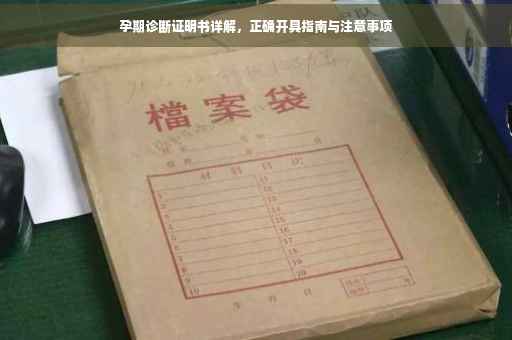 孕期诊断证明书详解，正确开具指南与注意事项
檔案袋
材料目次
1 11
2 12
3 13
4 14
5 15
6 16
7 17
8 18
9 19
10 20
年 月 日